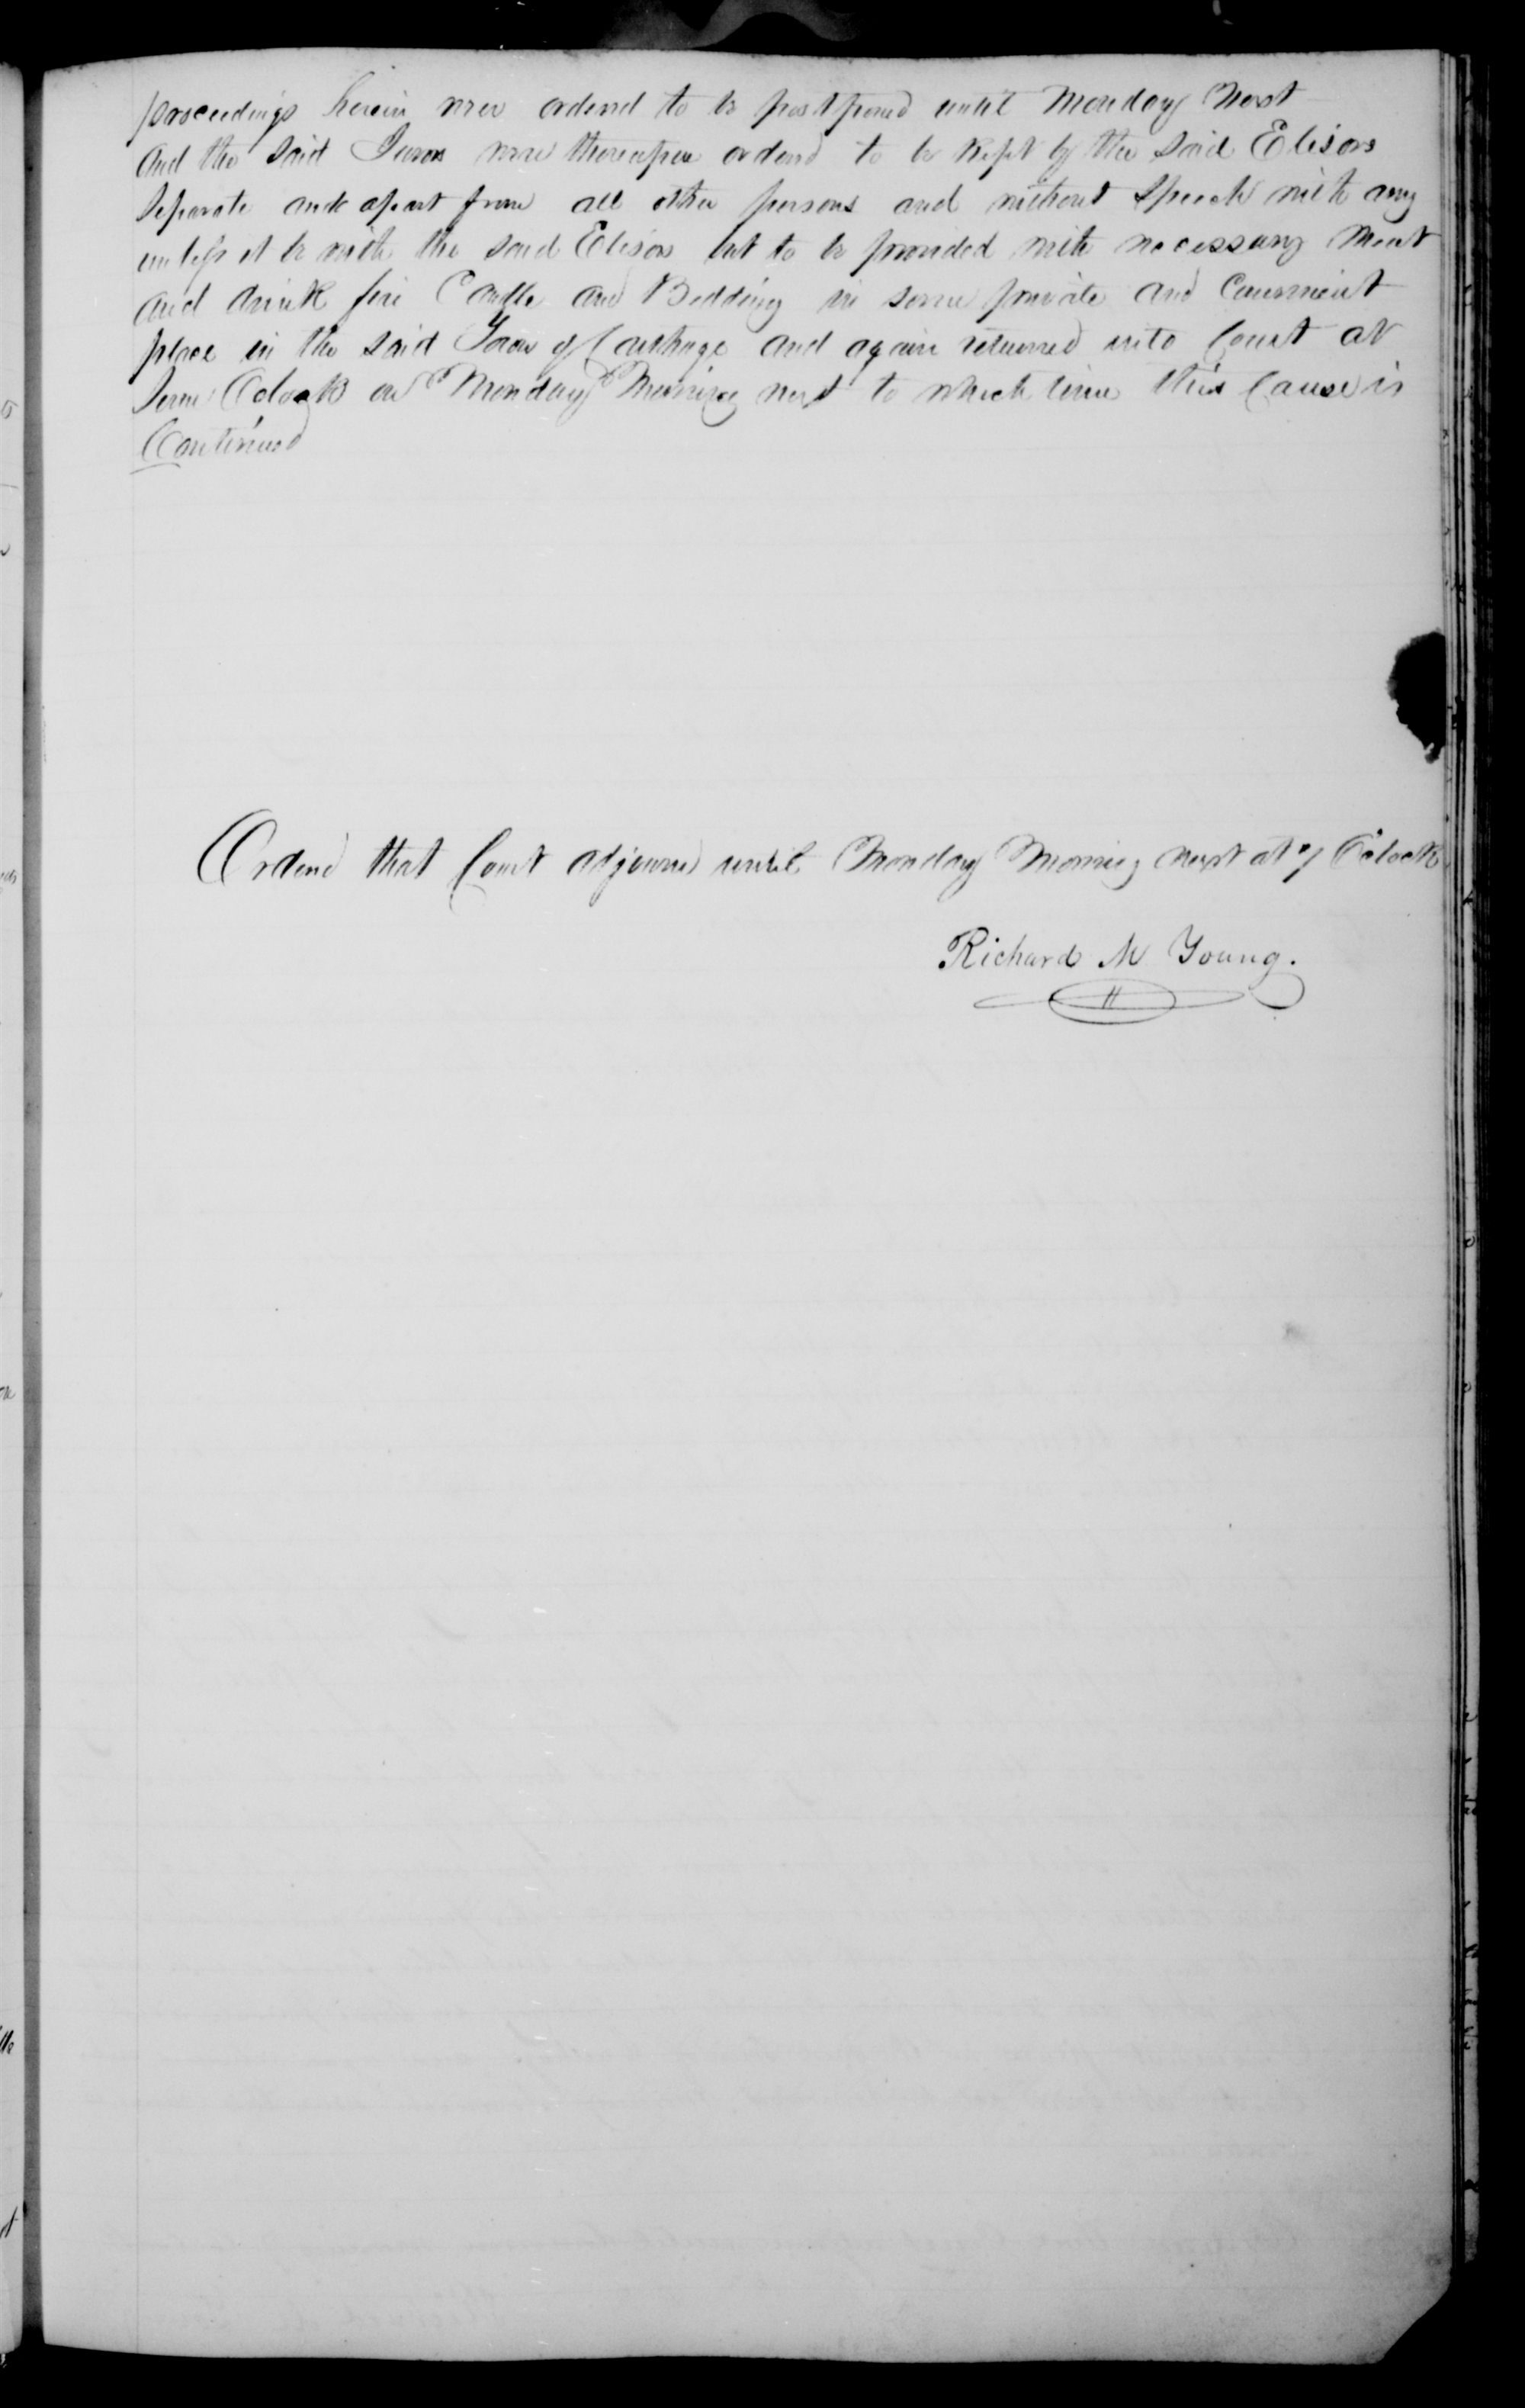 proceedings herein were ordered to be postponed until Monday Next
And the said Jurors were thereupon ordered to be Kept by the said Elisors
Separate and apart from all other persons and without Speech with any
unless it be with the said Elisors but to be provided with necessary Meat
and drink fire Candle and Bedding in some private and Convenient
place in the said Town of Carthage and again returned into Court at
Seven Oclock on Monday Morning next to which time this Cause is
Continued
Ordered that Court adjourn until Monday Morning next at 7 Oclock
Richard M Young.